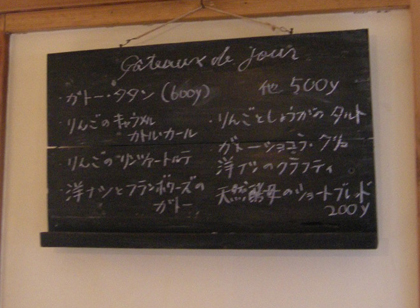 Gâteaux de jour
・ガトー・タタン (600y)
・りんごのキャラメル
カトルカール
・りんごのリンツァートルテ
・洋ナシとフランボワーズの
ガトー
他 500y
・りんごとしょうがのタルト
ガトーショコラ・
洋ナシのクラフティ
天然酵母のショートブレッド
200y